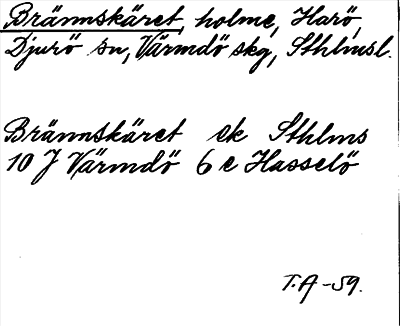 Brännskäret, holme, Harö,
Djurö sn, Värmdö skg, Sthlmsl.
Brännskäret ek Sthlms
10 J Värmdö 6 c Hasselö
T.A -59.